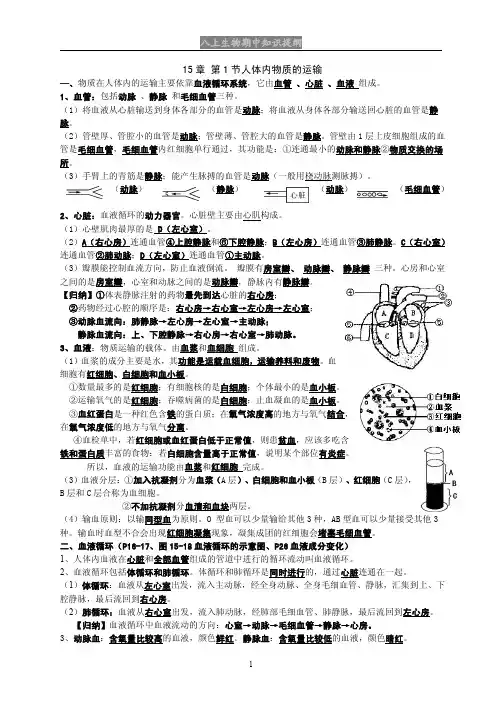 八上生物期中知识提纲
15章 第1节人体内物质的运输
一、物质在人体内的运输主要依靠血液循环系统，它由血管 、心脏 、血液 组成。
1、血管：包括动脉 、静脉 和毛细血管三种。
（1）将血液从心脏输送到身体各部分的血管是动脉；将血液从身体各部分输送回心脏的血管是静
脉。
（2）管壁厚、管腔小的血管是动脉；管壁薄、管腔大的血管是静脉。管壁由1层上皮细胞组成的血
管是毛细血管，毛细血管内红细胞单行通过，其功能是：①连通最小的动脉和静脉②物质交换的场
所。
（3）手臂上的青筋是静脉；能产生脉搏的血管是动脉（一般用桡动脉测脉搏）。
（动脉） （静脉） 心脏 （动脉） （毛细血管）
2、心脏：血液循环的动力器官。心脏壁主要由心肌构成。
（1）心壁肌肉最厚的是 D（左心室）。
（2）A（右心房）连通血管④上腔静脉和⑥下腔静脉；B（左心房）连通血管③肺静脉。C（右心室）
连通血管②肺动脉；D（左心室）连通血管①主动脉。
（3）瓣膜能控制血流方向，防止血液倒流。 瓣膜有房室瓣、 动脉瓣、 静脉瓣 三种。心房和心室
之间的是房室瓣，心室和动脉之间的是动脉瓣，静脉内有静脉瓣。
【归纳】①体表静脉注射的药物最先到达心脏的右心房；
②药物经过心腔的顺序是：右心房→右心室→左心房→左心室；
③动脉血流向：肺静脉→左心房→左心室→主动脉；
静脉血流向：上、下腔静脉→右心房→右心室→肺动脉。
④ ① ② ③ A B C D ⑤ ⑥
3、血液：物质运输的载体。由血浆和血细胞 组成。
（1）血浆的成分主要是水，其功能是运载血细胞，运输养料和废物。血
细胞有红细胞、白细胞和血小板。
①数量最多的是红细胞；有细胞核的是白细胞；个体最小的是血小板。
②运输氧气的是红细胞；吞噬病菌的是白细胞；止血凝血的是血小板。
③血红蛋白是一种红色含铁的蛋白质；在氧气浓度高的地方与氧气结合，
在氧气浓度低的地方与氧气分离。
④血检单中，若红细胞或血红蛋白低于正常值，则患贫血，应该多吃含
铁和蛋白质丰富的食物；若白细胞含量高于正常值，说明某个部位有炎症。
所以，血液的运输功能由血浆和红细胞 完成。
①白细胞
②血浆
③红细胞
④血小板
（3）血液分层：①加入抗凝剂分为血浆（A层）、白细胞和血小板（B层）、红细胞（C层），
B层和C层合称为血细胞。
②不加抗凝剂分血清和血块两层。
A
B
C
（4）输血原则：以输同型血为原则。O 型血可以少量输给其他3种，AB型血可以少量接受其他3
种。输血时血型不合会出现红细胞凝集现象，凝集成团的红细胞会堵塞毛细血管。
二、血液循环（P16-17、图15-18血液循环的示意图、P26血液成分变化）
1、人体内血液在心脏和全部血管组成的管道中进行的循环流动叫血液循环。
2、血液循环包括体循环和肺循环。体循环和肺循环是同时进行的，通过心脏连通在一起。
（1）体循环：血液从左心室出发，流入主动脉，经全身动脉、全身毛细血管、静脉，汇集到上、下
腔静脉，最后流回到右心房。
（2）肺循环：血液从右心室出发，流入肺动脉，经肺部毛细血管、肺静脉，最后流回到左心房。
【归纳】血液循环中血液流动的方向：心室→动脉→毛细血管→静脉→心房。
3、动脉血：含氧量比较高的血液，颜色鲜红。静脉血：含氧量比较低的血液，颜色暗红。
1